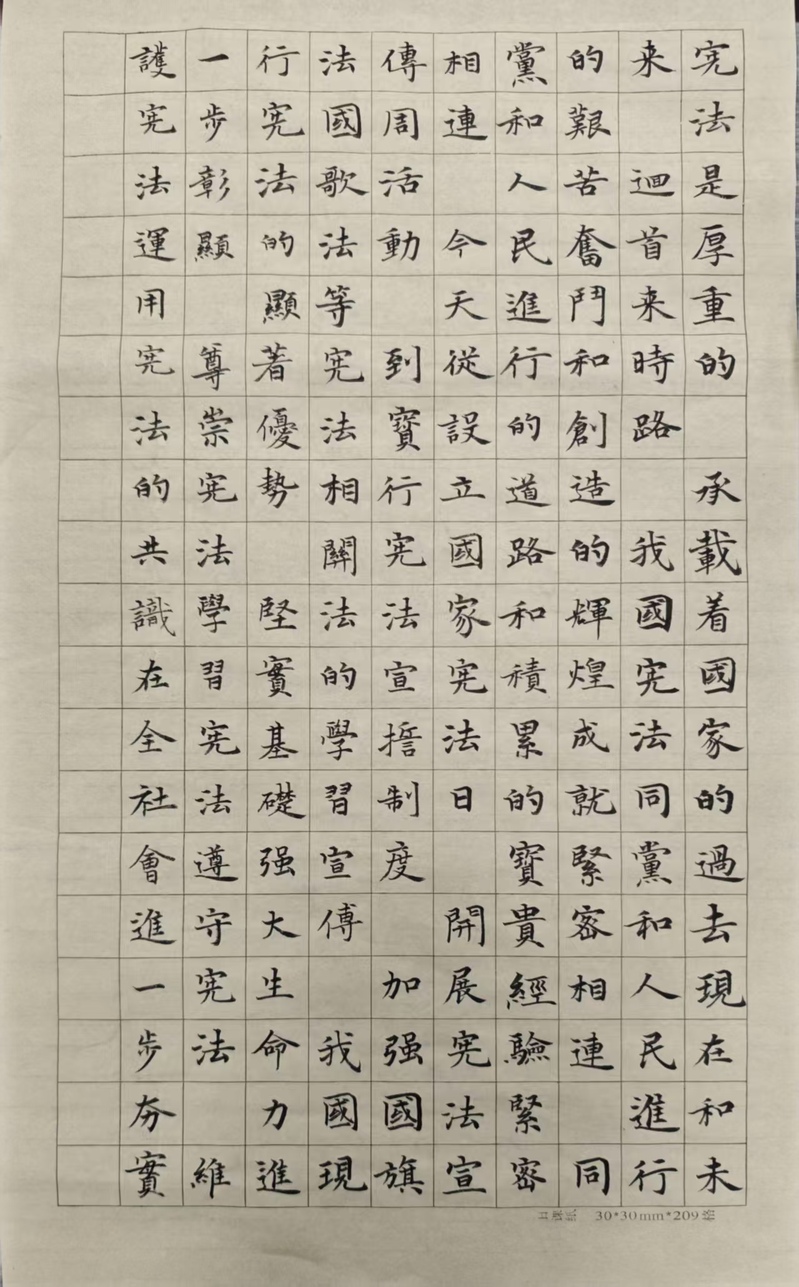 宪法是厚重的 承載着國家的過去現在和未
来 迴首来時路 我國宪法同黨和人民進行
的艱苦奮鬥和創造的輝煌成就緊密相連 同
黨和人民進行的道路和積累的寳貴經驗緊密
相連 今天從設立國家宪法日 開展宪法宣
傳周活動 到寳行宪法宣誓制度 加强國旗
法國歌法等宪法相關法的學習宣傳 我國現
行宪法的顯著優勢 堅實基礎强大生命力進
一步彰顯 尊崇宪法學習宪法遵守宪法 維
護宪法運用宪法的共識在全社會進一步夯實
30*30mm*209